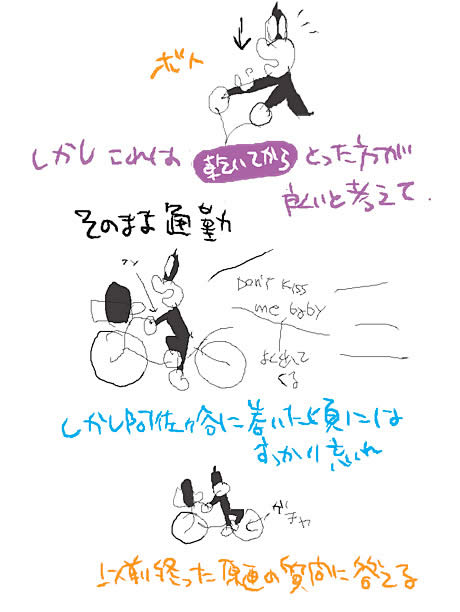 ボト
しかし これは 乾いてから とった方が
良いと考えて.
そのまま通勤
フン
Don't Kiss
me baby
よく流れて
くる
しかし阿佐ヶ谷に着いた頃には
すっかり忘れ
ガチャ
以前終った原画の質問に答える